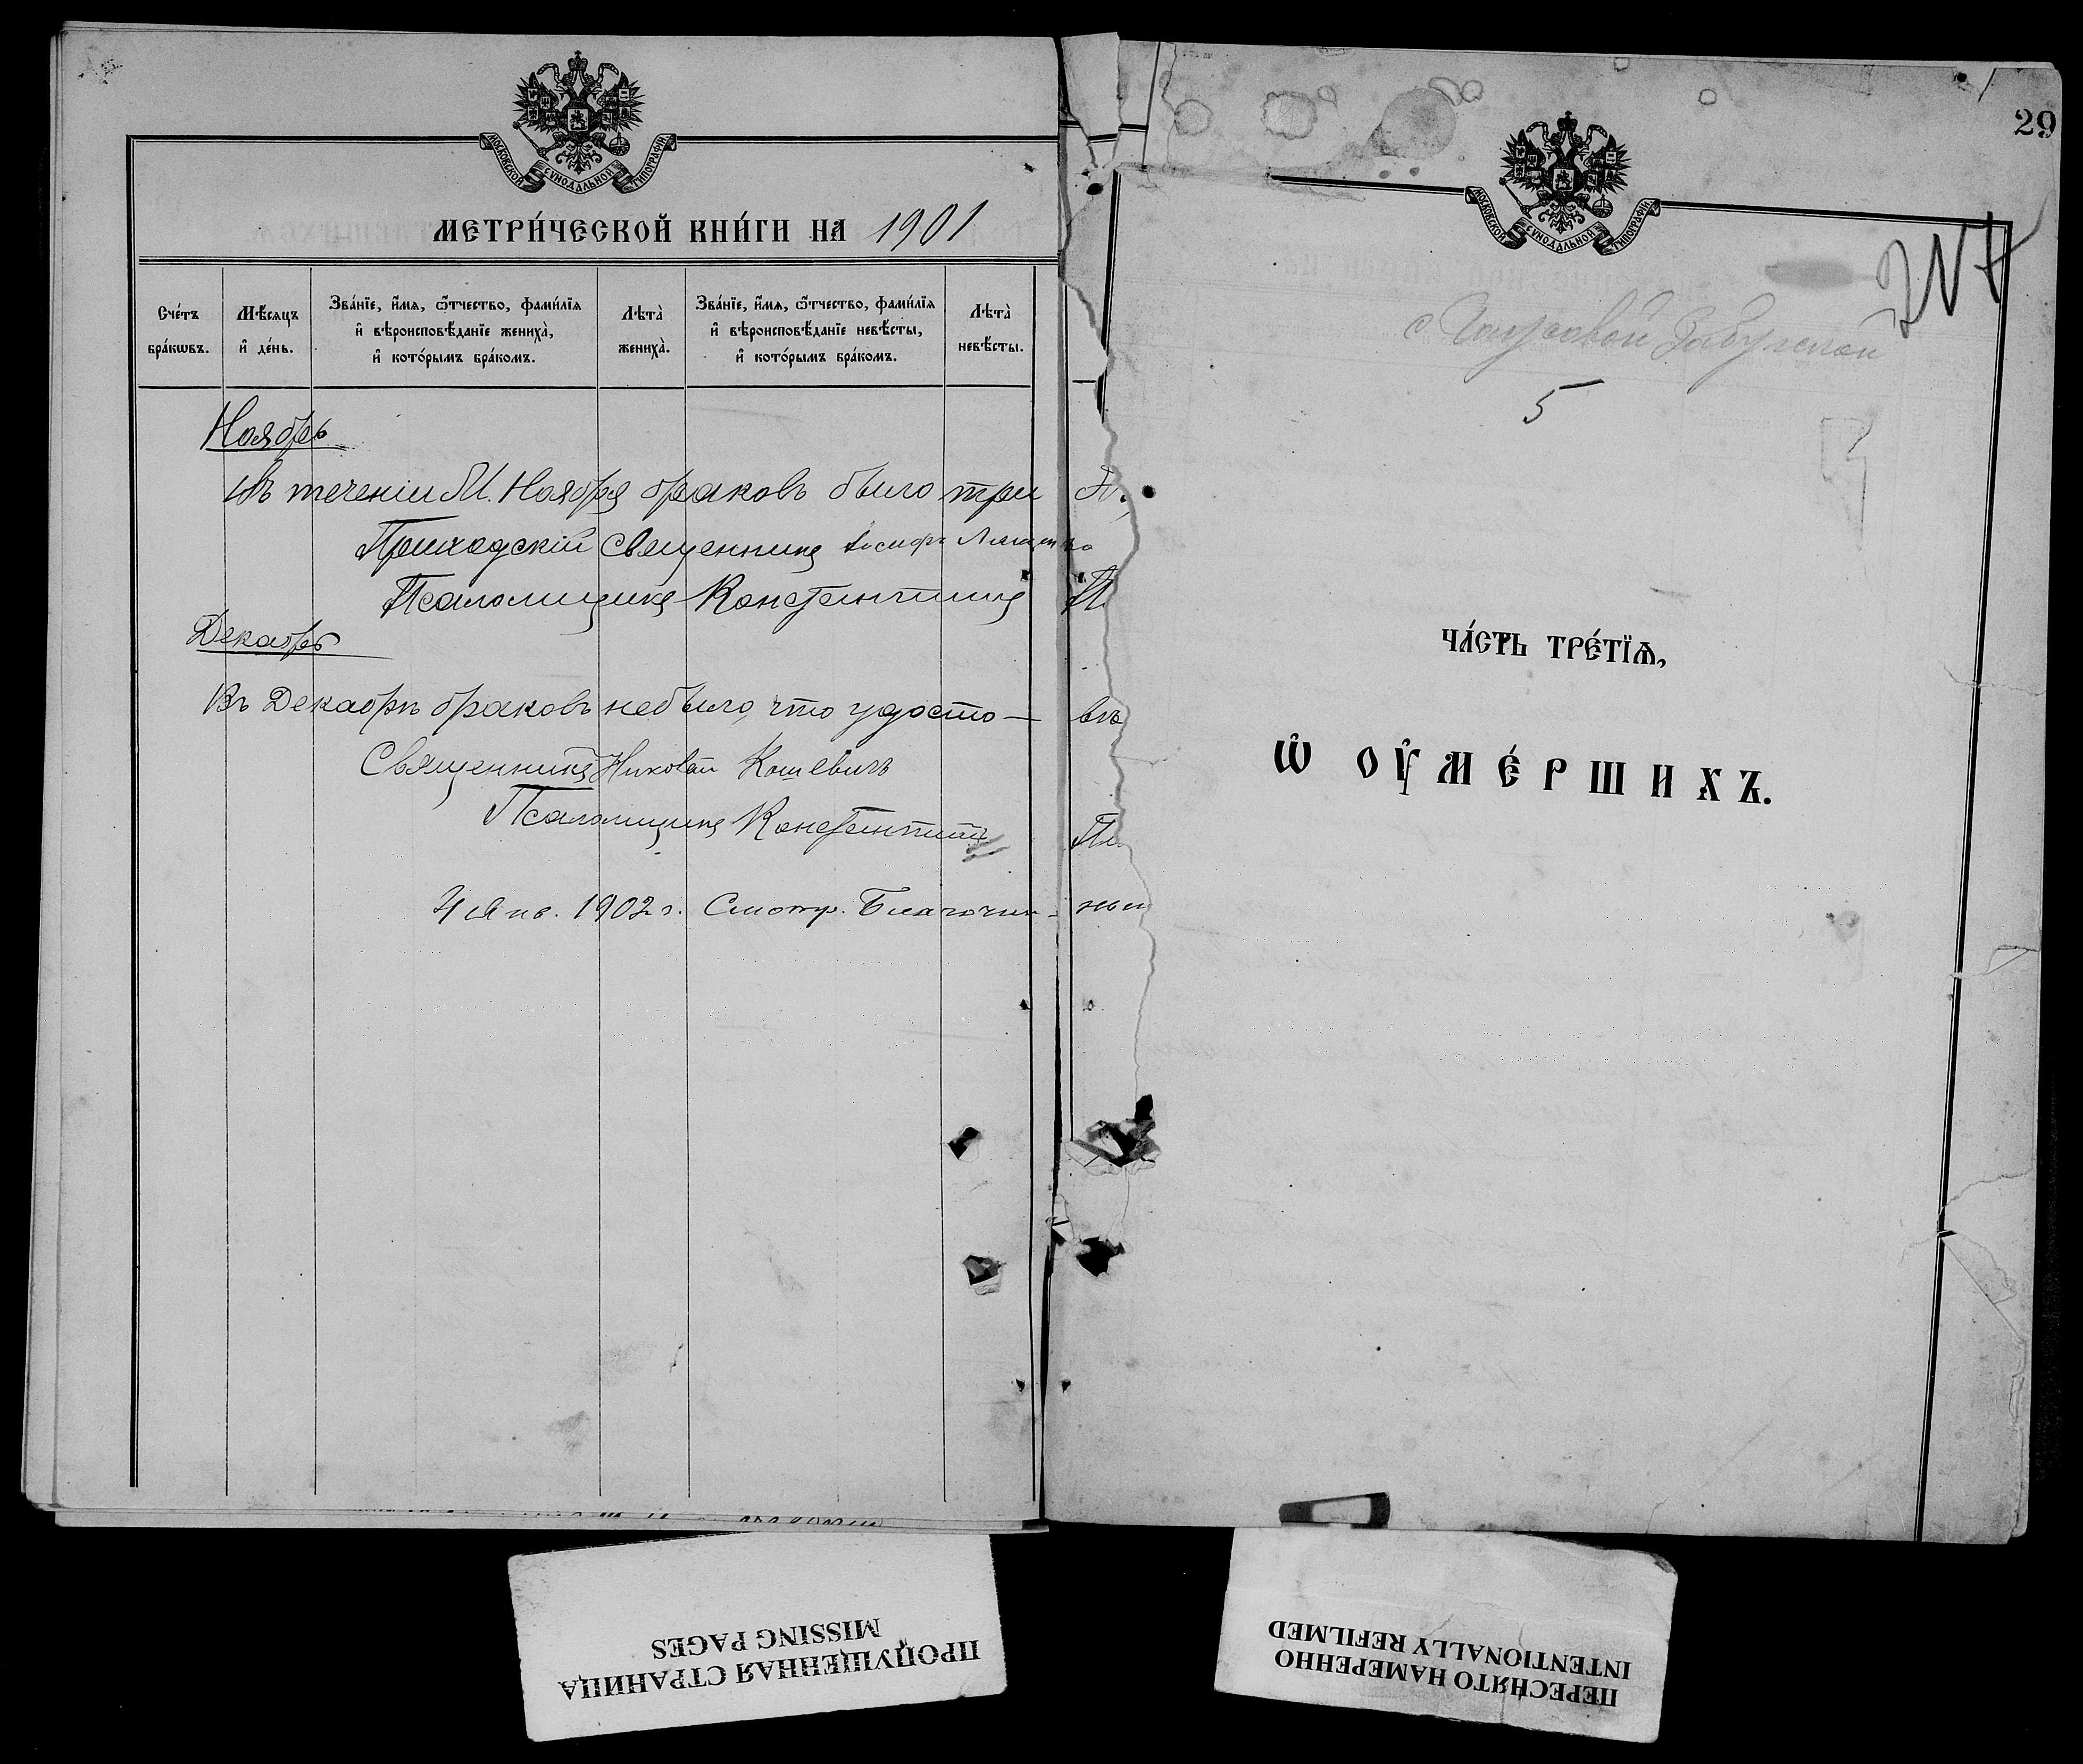 МОСКОВСКОЙ СѴНОДАЛЬНОЙ ТИПОГРАФІИ.
МЕТРИ́ЧЕСКОЙ КНИ́ГИ НА 1901
Сче́тъ бра́кѡвъ.
Мѣ́сяцъ и҆ де́нь.
Зва́нїе, и҆́мя, ѻ҆́тчество, фами́лїя
и҆ вѣроисповѣ́данїе жениха̀,
и҆ кото́рымъ бра́комъ.
Лѣта̀ жениха̀.
Зва́нїе, и҆́мя, ѻ҆́тчество, фами́лїя
и҆ вѣроисповѣ́данїе невѣ́сты,
и҆ кото́рымъ бра́комъ.
Лѣта̀ невѣ́сты.
Ноябрь
Въ теченіи М. Ноября браковъ было три
Приходскій Священникъ Іосифъ
Псаломщикъ Константинъ
Декабрь
Въ Декабрѣ браковъ небыло, что удосто—
Священникъ Николай Кошевичъ
Псаломщикъ Константинъ
4 Янв. 1902 г. Смотр. Благочин-
29
МОСКОВСКОЙ СѴНОДАЛЬНОЙ ТИПОГРАФІИ.
с.
5
ЧА́СТЬ ТРЕ́ТЇѦ,
Ѡ҆ ОУ҆МЕ́РШИХЪ.
ПРОПУЩЕННАЯ СТРАНИЦА
MISSING PAGES
ПЕРЕСНЯТО НАМЕРЕННО
INTENTIONALLY REFILMED